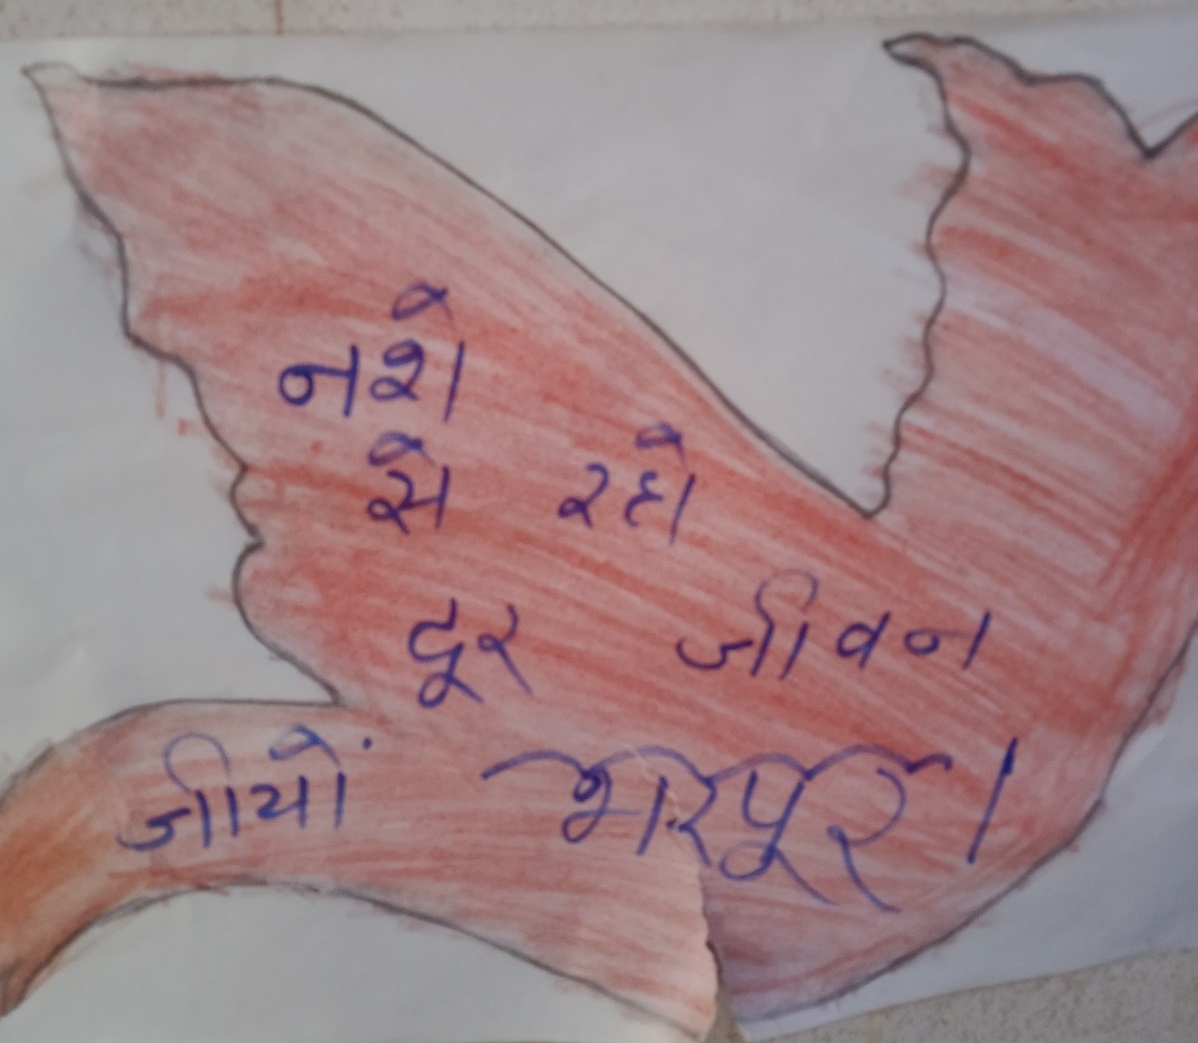 नशे
से रहो
दूर जीवन
जीयों भरपूर।